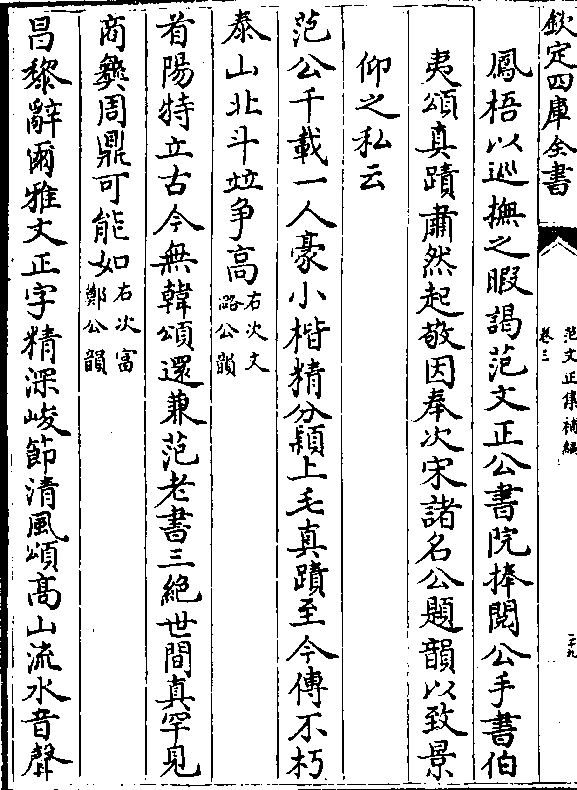 欽定四庫全書
范文正集補編
卷三
二十九
鳳梧以巡撫之暇謁范文正公書院捧閲公手書伯
夷頌真蹟肅然起敬因奉次宋諸名公題韻以致景
仰之私云
范公千載一人豪小楷精分穎上毛真蹟至今傳不朽
泰山北斗竝争高右次文
潞公韻
首陽特立古今無韓頌還兼范老書三絶世間真罕見
商彝周鼎可能如右次富
鄭公韻
昌黎辭爾雅文正字精深峻節清風頌高山流水音聲